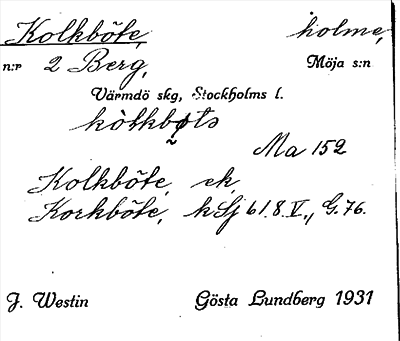 Kolkböte, holme,
n:r 2 Berg, Möja s:n
Värmdö skg, Stockholms l.
kòlkbøts
Ma 152
Kolkböte, ek,
Korkböte, kSj 61.8.V., G. 76.
J. Westin Gösta Lundberg 1931